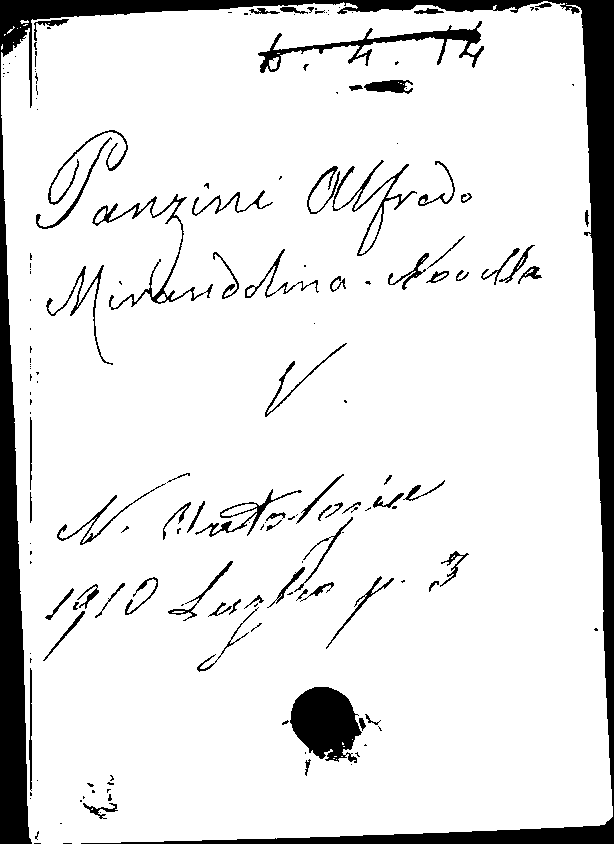 6. 4. 14
Panzini Alfredo
Mirandolina. Novella
V.
N. Antologia
1910 Luglio p. 3